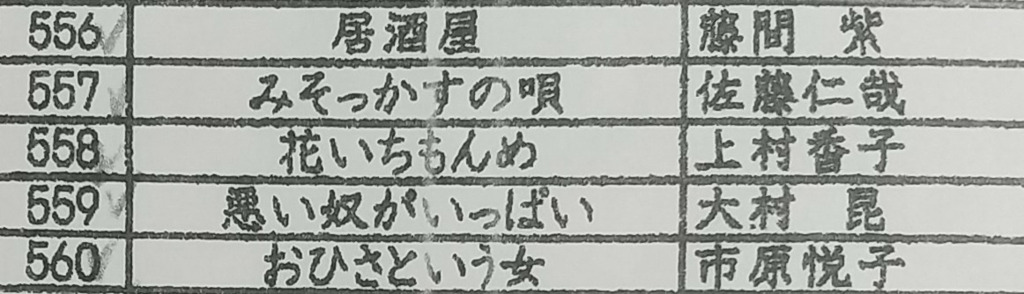 556 居酒屋 藤間 紫
557 みそっかすの唄 佐藤仁哉
558 花いちもんめ 上村香子
559 悪い奴がいっぱい 大村 昆
560 おひさという女 市原悦子